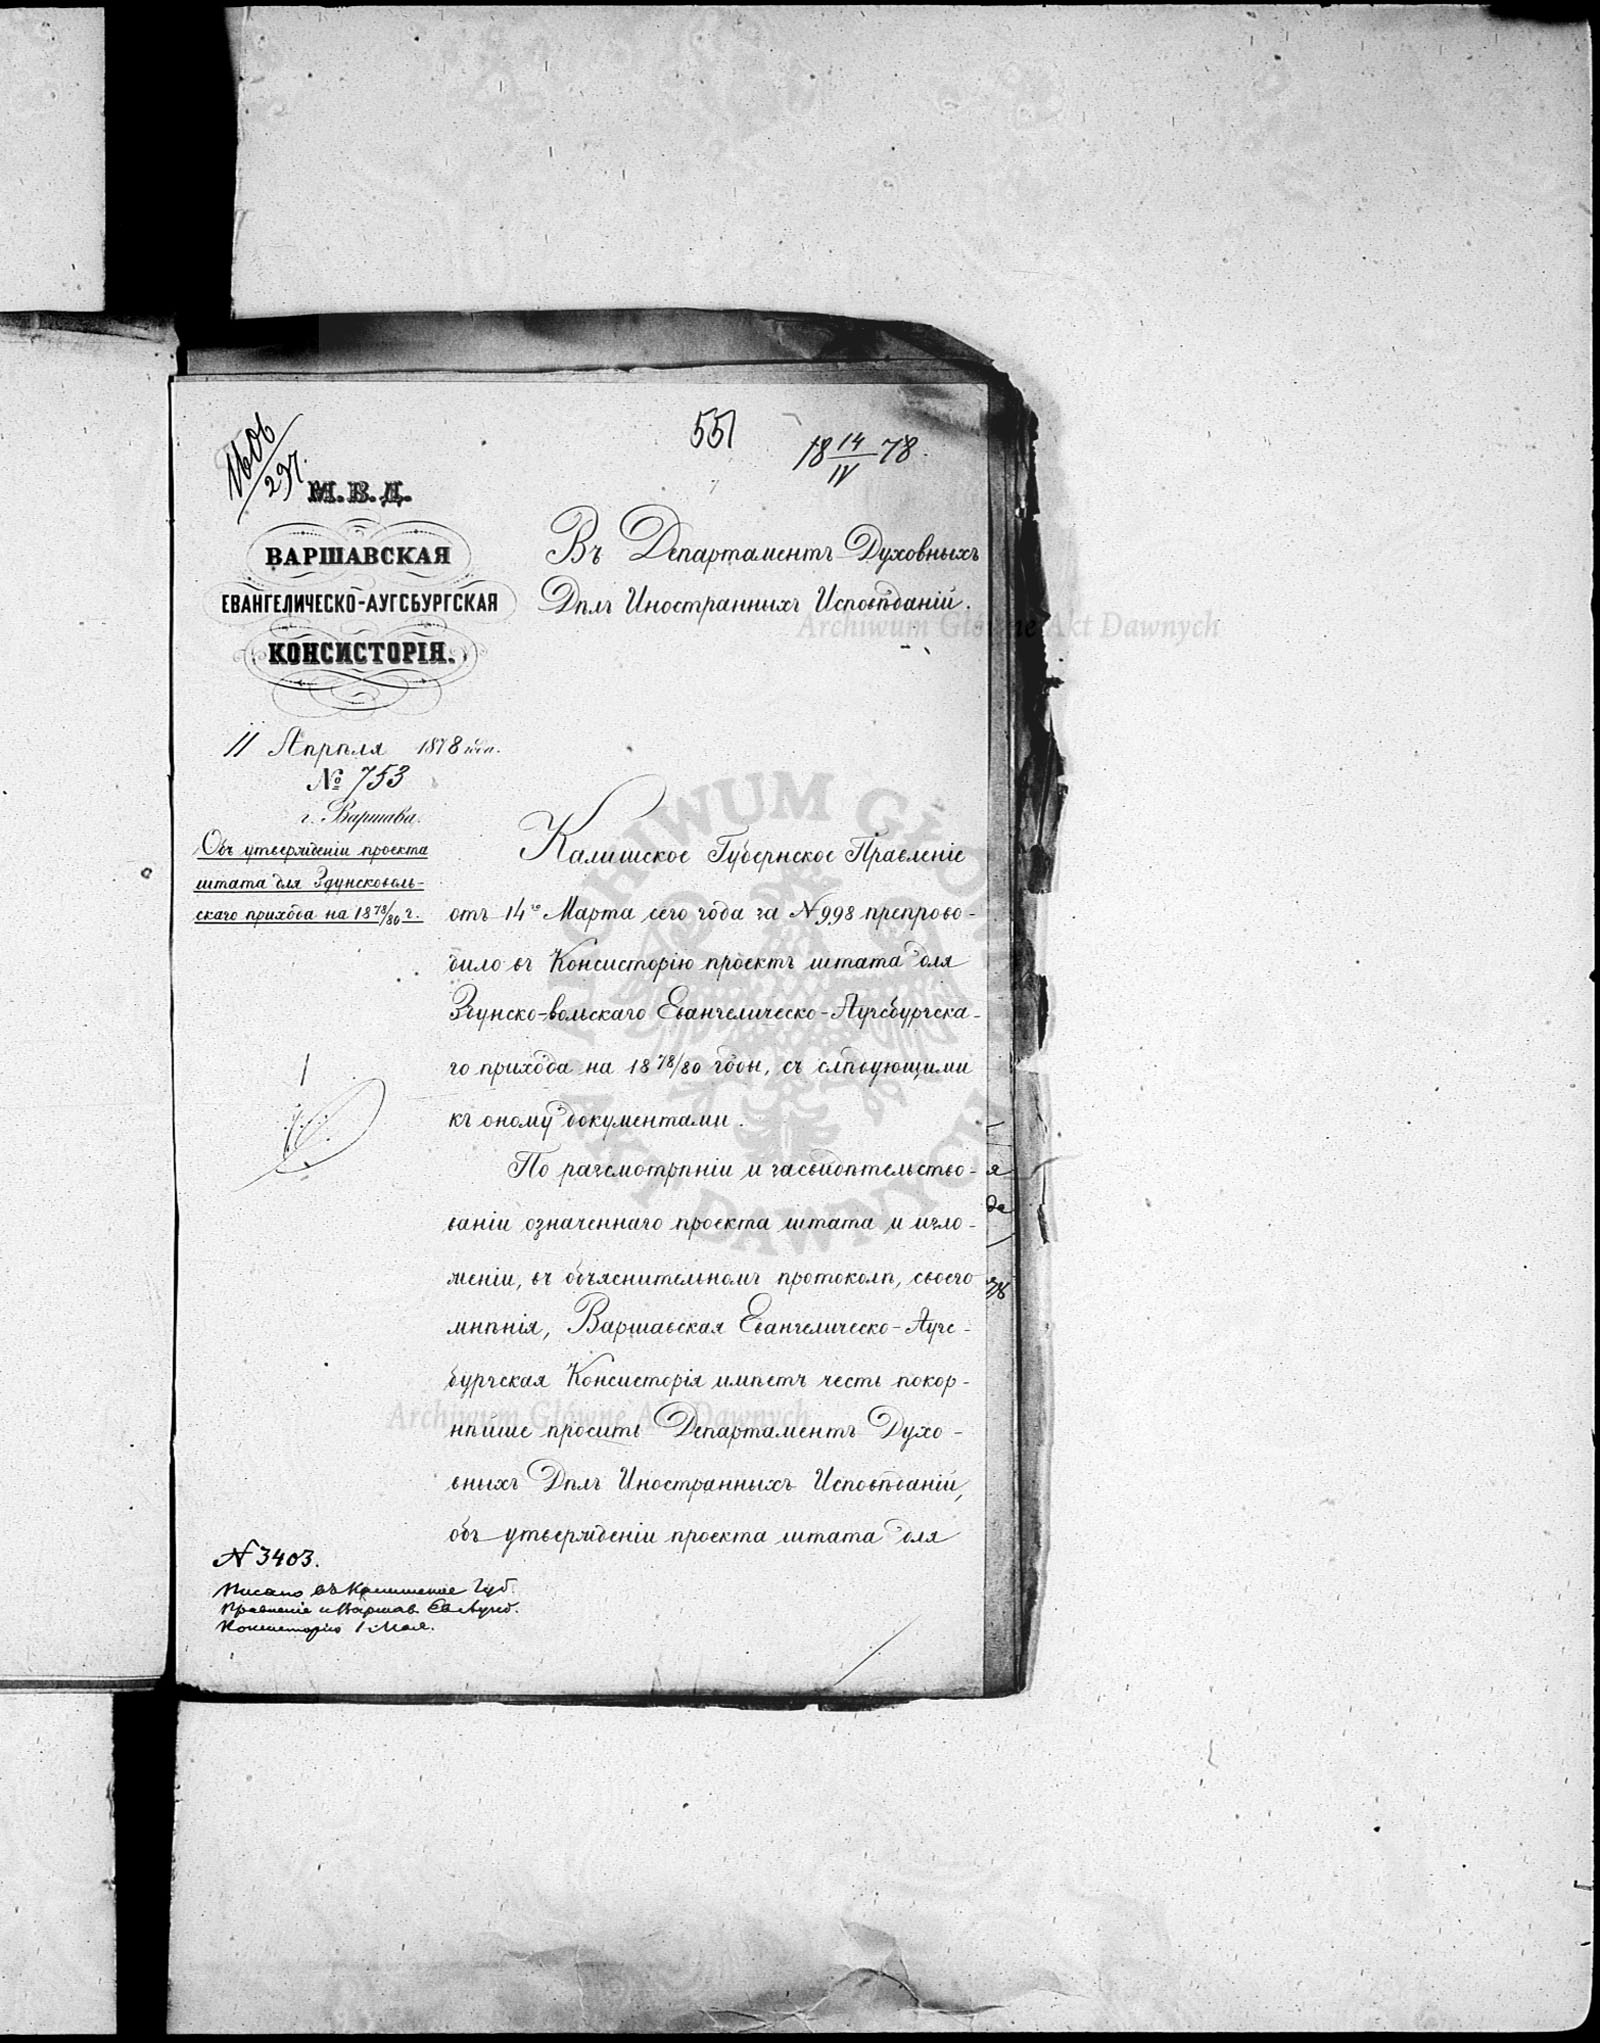 551
18 14/IV 78.
1606/294.
М.В.Д.
ВАРШАВСКАЯ
ЕВАНГЕЛИЧЕСКО-АУГСБУРГСКАЯ
КОНСИСТОРІЯ.
11 Апрѣля 1878 года.
№ 753
г. Варшава.
Объ утвержденіи проекта
штата для Здунсковоль-
скаго прихода на 18 78/80 г.
Въ Департаментъ Духовныхъ
Дѣлъ Иностранныхъ Исповѣданій.
Калишское Губернское Правленіе
отъ 14го Марта сего года за N 998 препрово-
дило въ Консисторію проектъ штата для
Здунско-вольскаго Евангелическо-Аугсбургска-
го прихода на 18 78/80 годы, съ слѣдующими
къ оному документами.
По разсмотрѣніи и засвидѣтельство-
ваніи означеннаго проекта штата и изло-
женіи, въ объяснительномъ протоколѣ, своего
мнѣнія, Варшавская Евангелическо-Аугс-
бургская Консисторія имѣетъ честь покор-
нѣйше просить Департаментъ Духо-
вныхъ Дѣлъ Иностранныхъ Исповѣданій,
объ утвержденіи проекта штата для
N 3403.
Писано въ Калишское Губ.
Правленіе и Варшав. Ев. Аугсб.
Консисторію 1 Мая.
Archiwum Główne Akt Dawnych
Archiwum Główne Akt Dawnych
ARCHIWUM GŁÓWNE AKT DAWNYCH